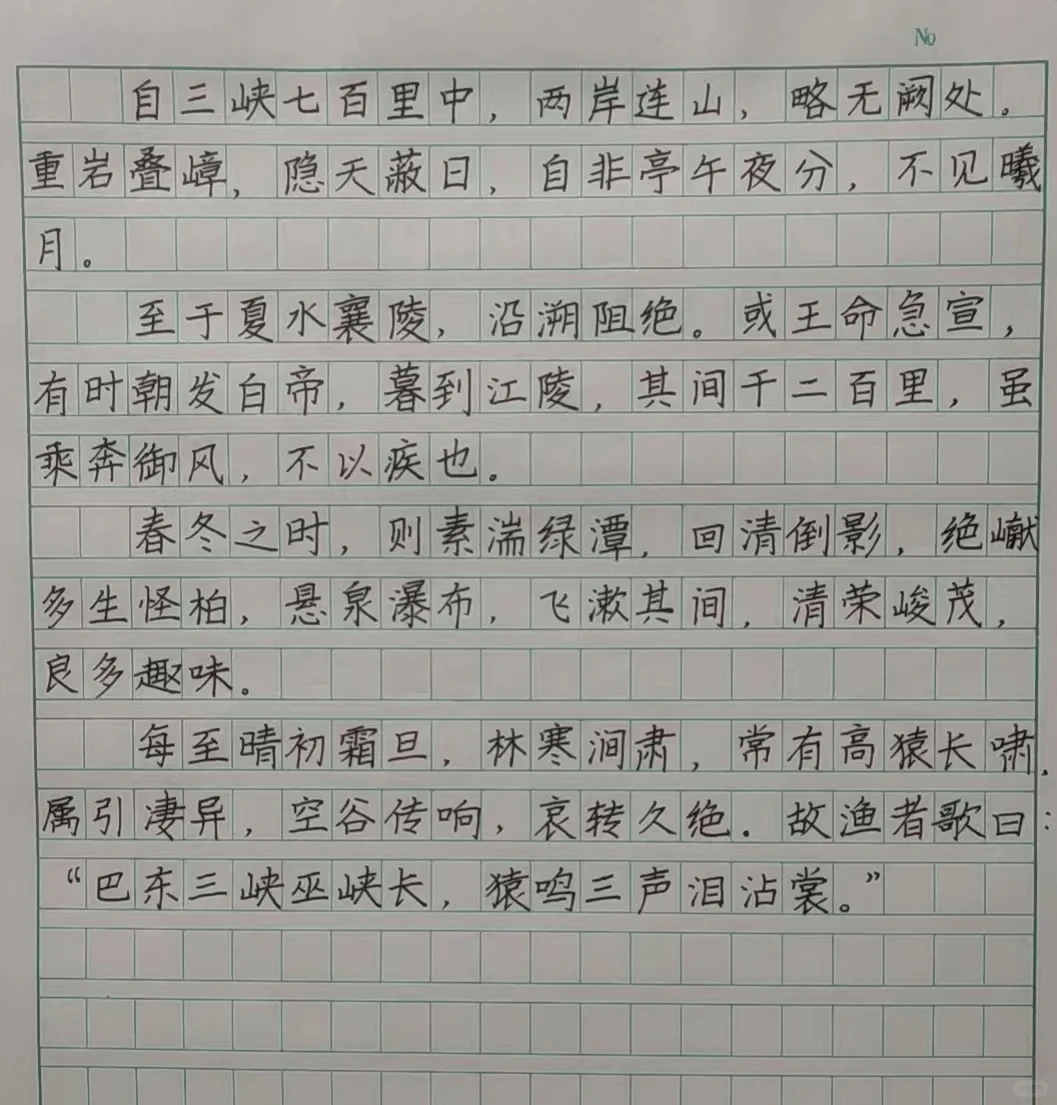 No
自三峡七百里中，两岸连山，略无阙处。
重岩叠嶂，隐天蔽日，自非亭午夜分，不见曦
月。
至于夏水襄陵，沿溯阻绝。或王命急宣，
有时朝发白帝，暮到江陵，其间千二百里，虽
乘奔御风，不以疾也。
春冬之时，则素湍绿潭，回清倒影，绝巘
多生怪柏，悬泉瀑布，飞漱其间，清荣峻茂，
良多趣味。
每至晴初霜旦，林寒涧肃，常有高猿长啸，
属引凄异，空谷传响，哀转久绝。故渔者歌曰：
“巴东三峡巫峡长，猿鸣三声泪沾裳。”